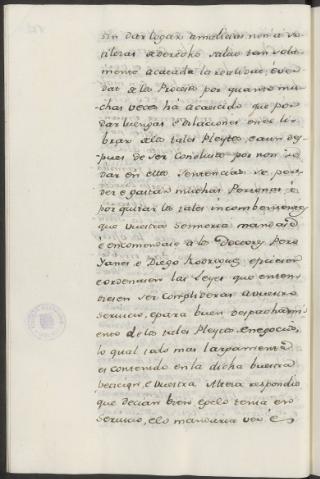 sin dar logar a malicias non a so
lileras de derecho salvo tan sola
mente acatada la realidad, é ver
dat de los Procesos por quanto mu-
chas veces há acaecido que por
dar luengas é dilaciones en de li-
brar de los tales Pleytos, e aun des-
pues de ser concluso por non se
dar en ellos Sentencias se pier-
den e gastan muchas Personas é
por quitar los tales incombenientes
que vuestra Señoria mandara
é encomendara a los Doctores Pero
Yanes é Diego Rodriguez ficieren
e ordenasen las Leyes que enten
diesen ser complideras a vuestro
servicio, e para buen despachami
ento de los tales Pleytos, e negocios,
lo qual todo mas largamente
es contenido en la dicha nuestra
peticion, e Vuestra Alteza respondio
que decian bien, e gelo tenia en
servicio, e lo mandaria ver é